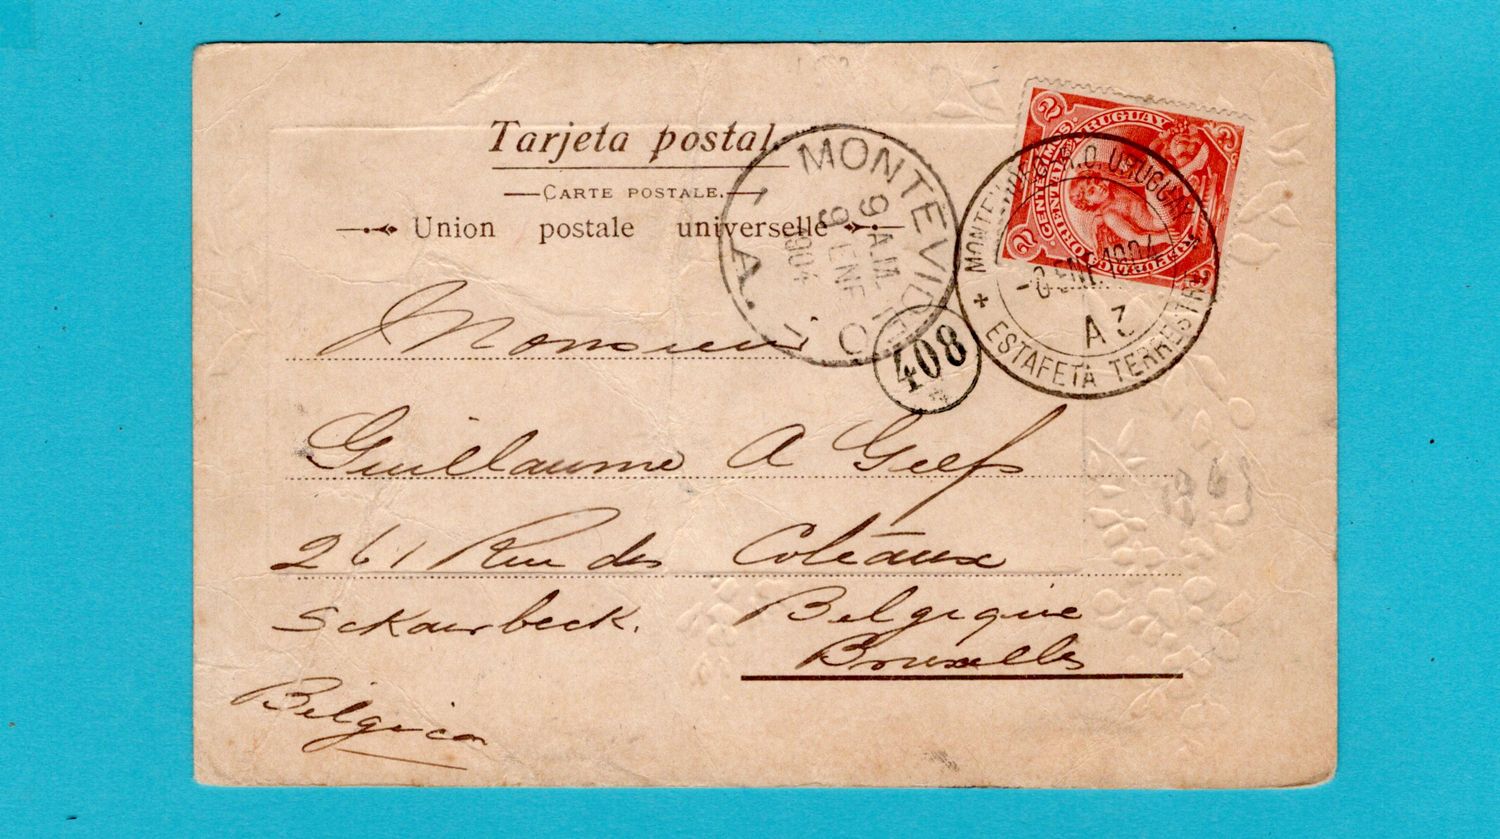 Tarjeta postal.
CARTE POSTALE.
Union postale universelle
MONTEVIDEO
9 A.M.
9 ENE
1904
408
2 CENTESIMOS 2
URUGUAY
REPUBLICA ORIENTAL
2 2
MONTEVIDEO R.O. URUGUAY
ENE 1904
A3
ESTAFETA TERRESTRE
Monsieur
Guillaume A Geefs
261 Rue des Coteaux
Sckaerbeck. Belgique
Bruxelles
Belgica